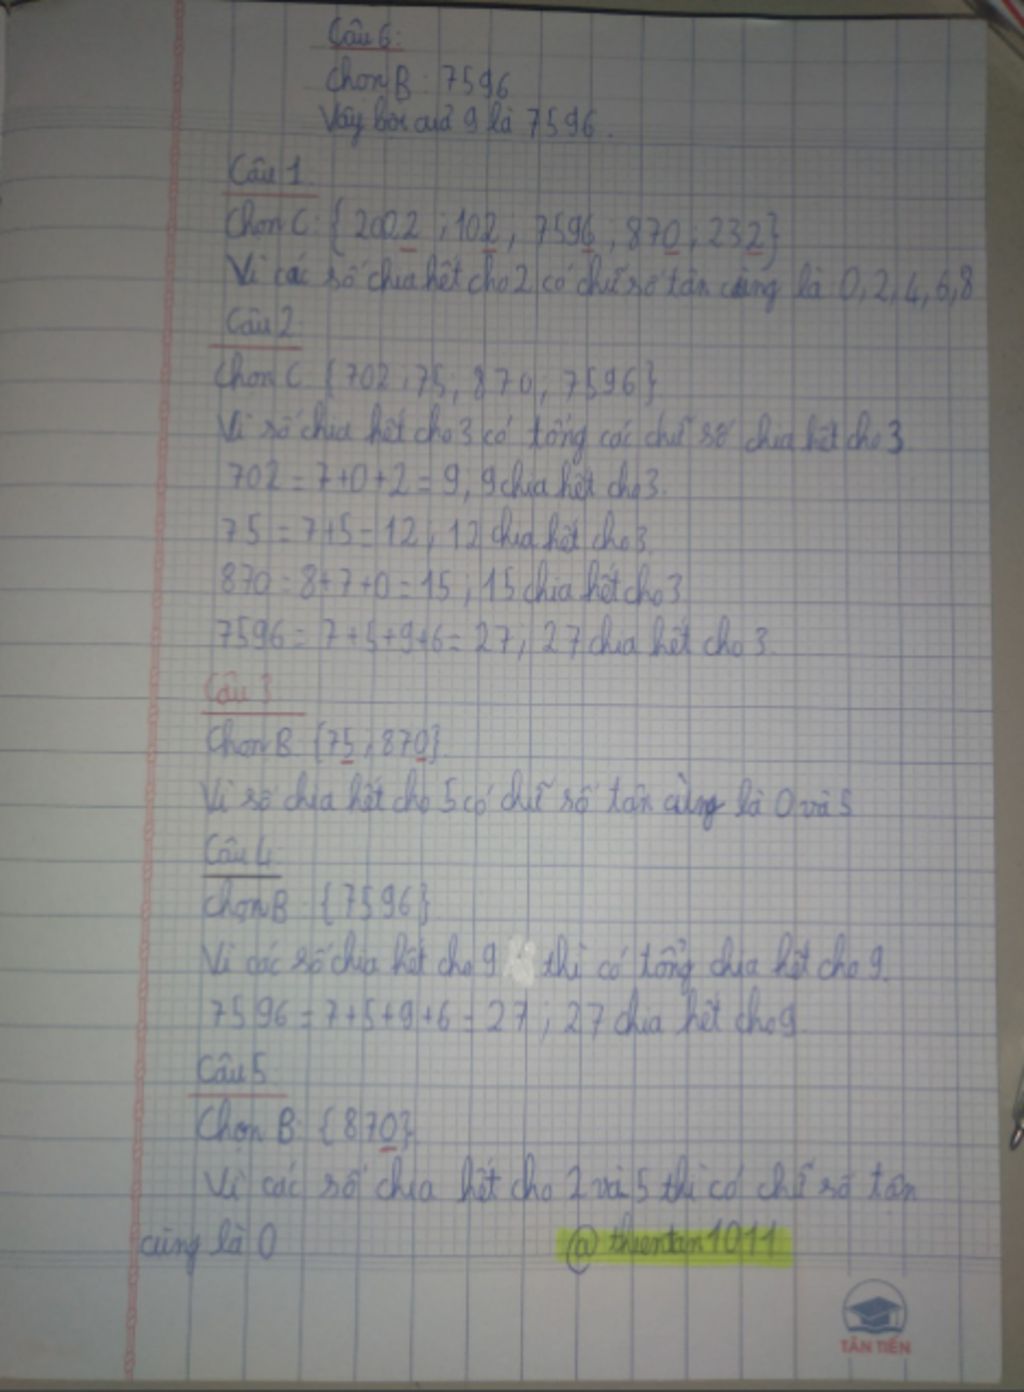 Câu 6:
Chọn B: 7596
Vậy bội của 9 là 7596.
Câu 1
Chọn C: {2002 ; 102 ; 7596 ; 870 ; 232}
Vì các số chia hết cho 2 có chữ số tận cùng là 0, 2, 4, 6, 8
Câu 2
Chọn C {702 ; 75 ; 870 ; 7596}
Vì số chia hết cho 3 có tổng các chữ số chia hết cho 3
702 = 7+0+2 = 9, 9 chia hết cho 3.
75 = 7+5 = 12 ; 12 chia hết cho 3
870 = 8+7+0 = 15 ; 15 chia hết cho 3
7596 = 7+5+9+6 = 27 ; 27 chia hết cho 3
Câu 3
Chọn B {75 ; 870}
Vì số chia hết cho 5 có chữ số tận cùng là 0 và 5
Câu 4
Chọn B : {7596}
Vì các số chia hết cho 9 thì có tổng chia hết cho 9.
7596 = 7+5+9+6 = 27 ; 27 chia hết cho 9
Câu 5
Chọn B: {870}
Vì các số chia hết cho 2 và 5 thì có chữ số tận
cùng là 0
@thientan1011
TÂN TIẾN